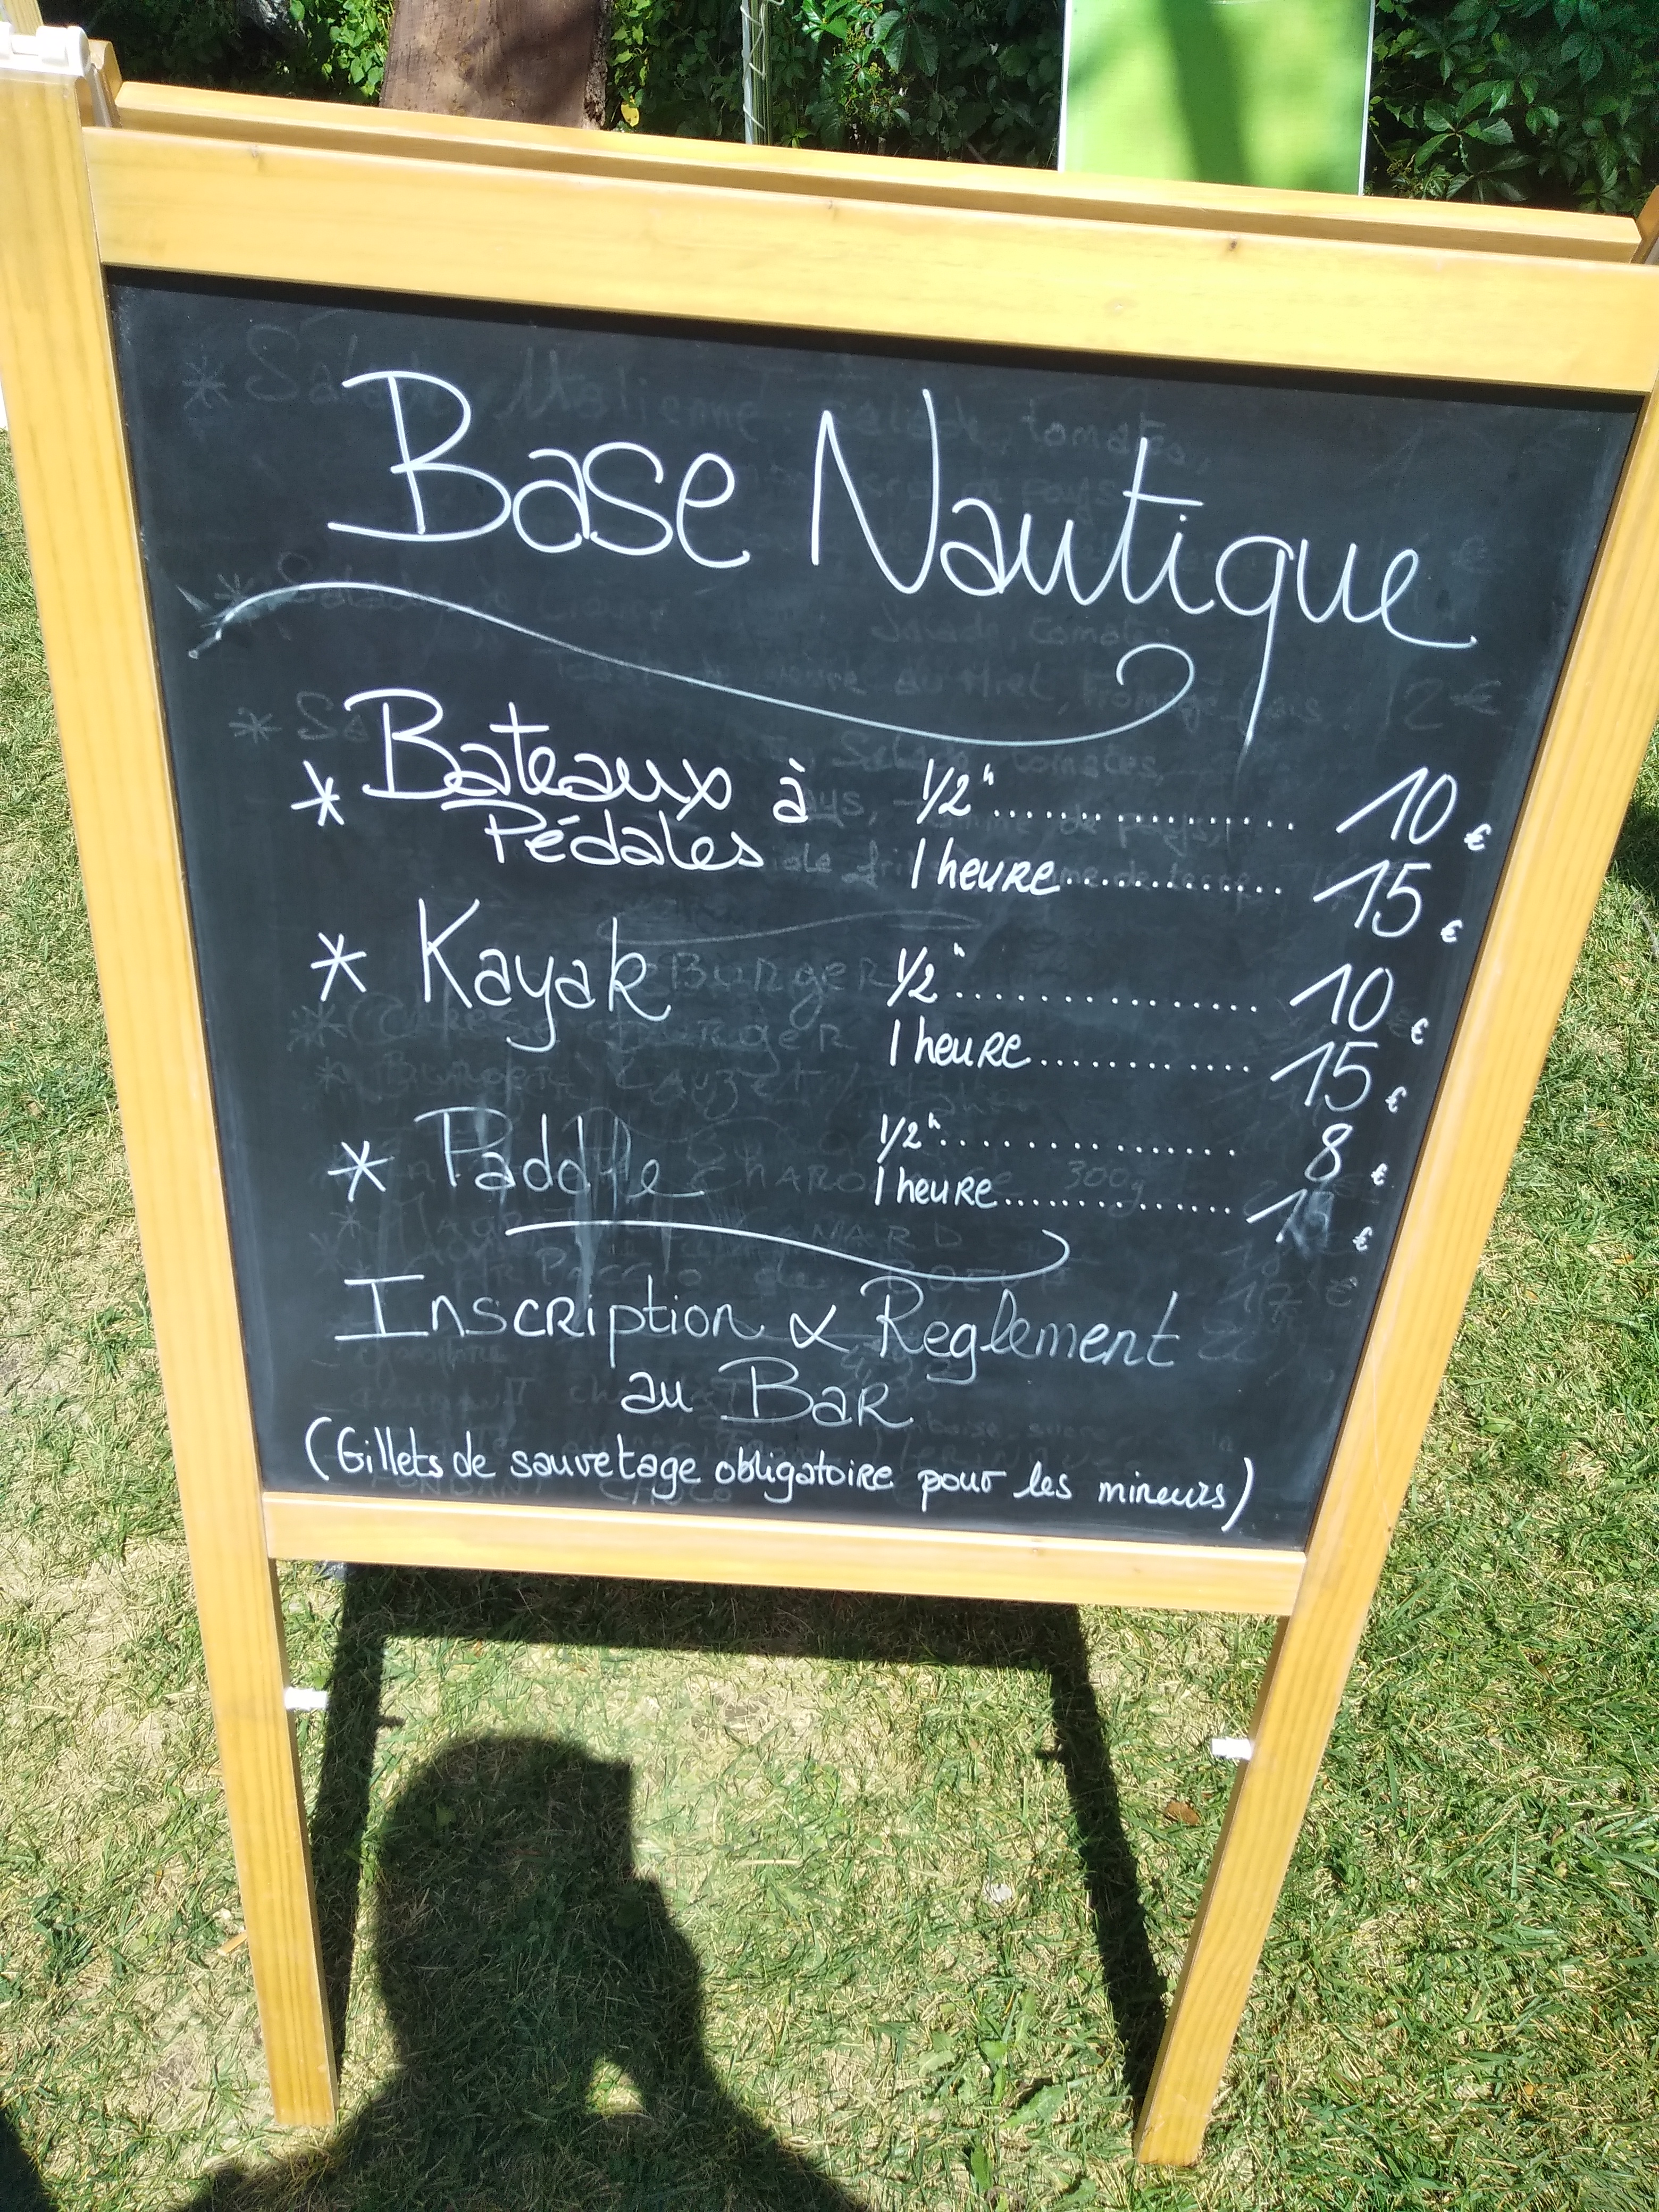 Base Nautique
* Bateaux à Pédales 1/2 h ................ 10 €
1 heure ............. 15 €
* Kayak 1/2 h ................ 10 €
1 heure ............. 15 €
* Paddle 1/2 h ................ 8 €
1 heure .............. €
Inscription & Reglement
au Bar
(Gillets de sauvetage obligatoire pour les mineurs)